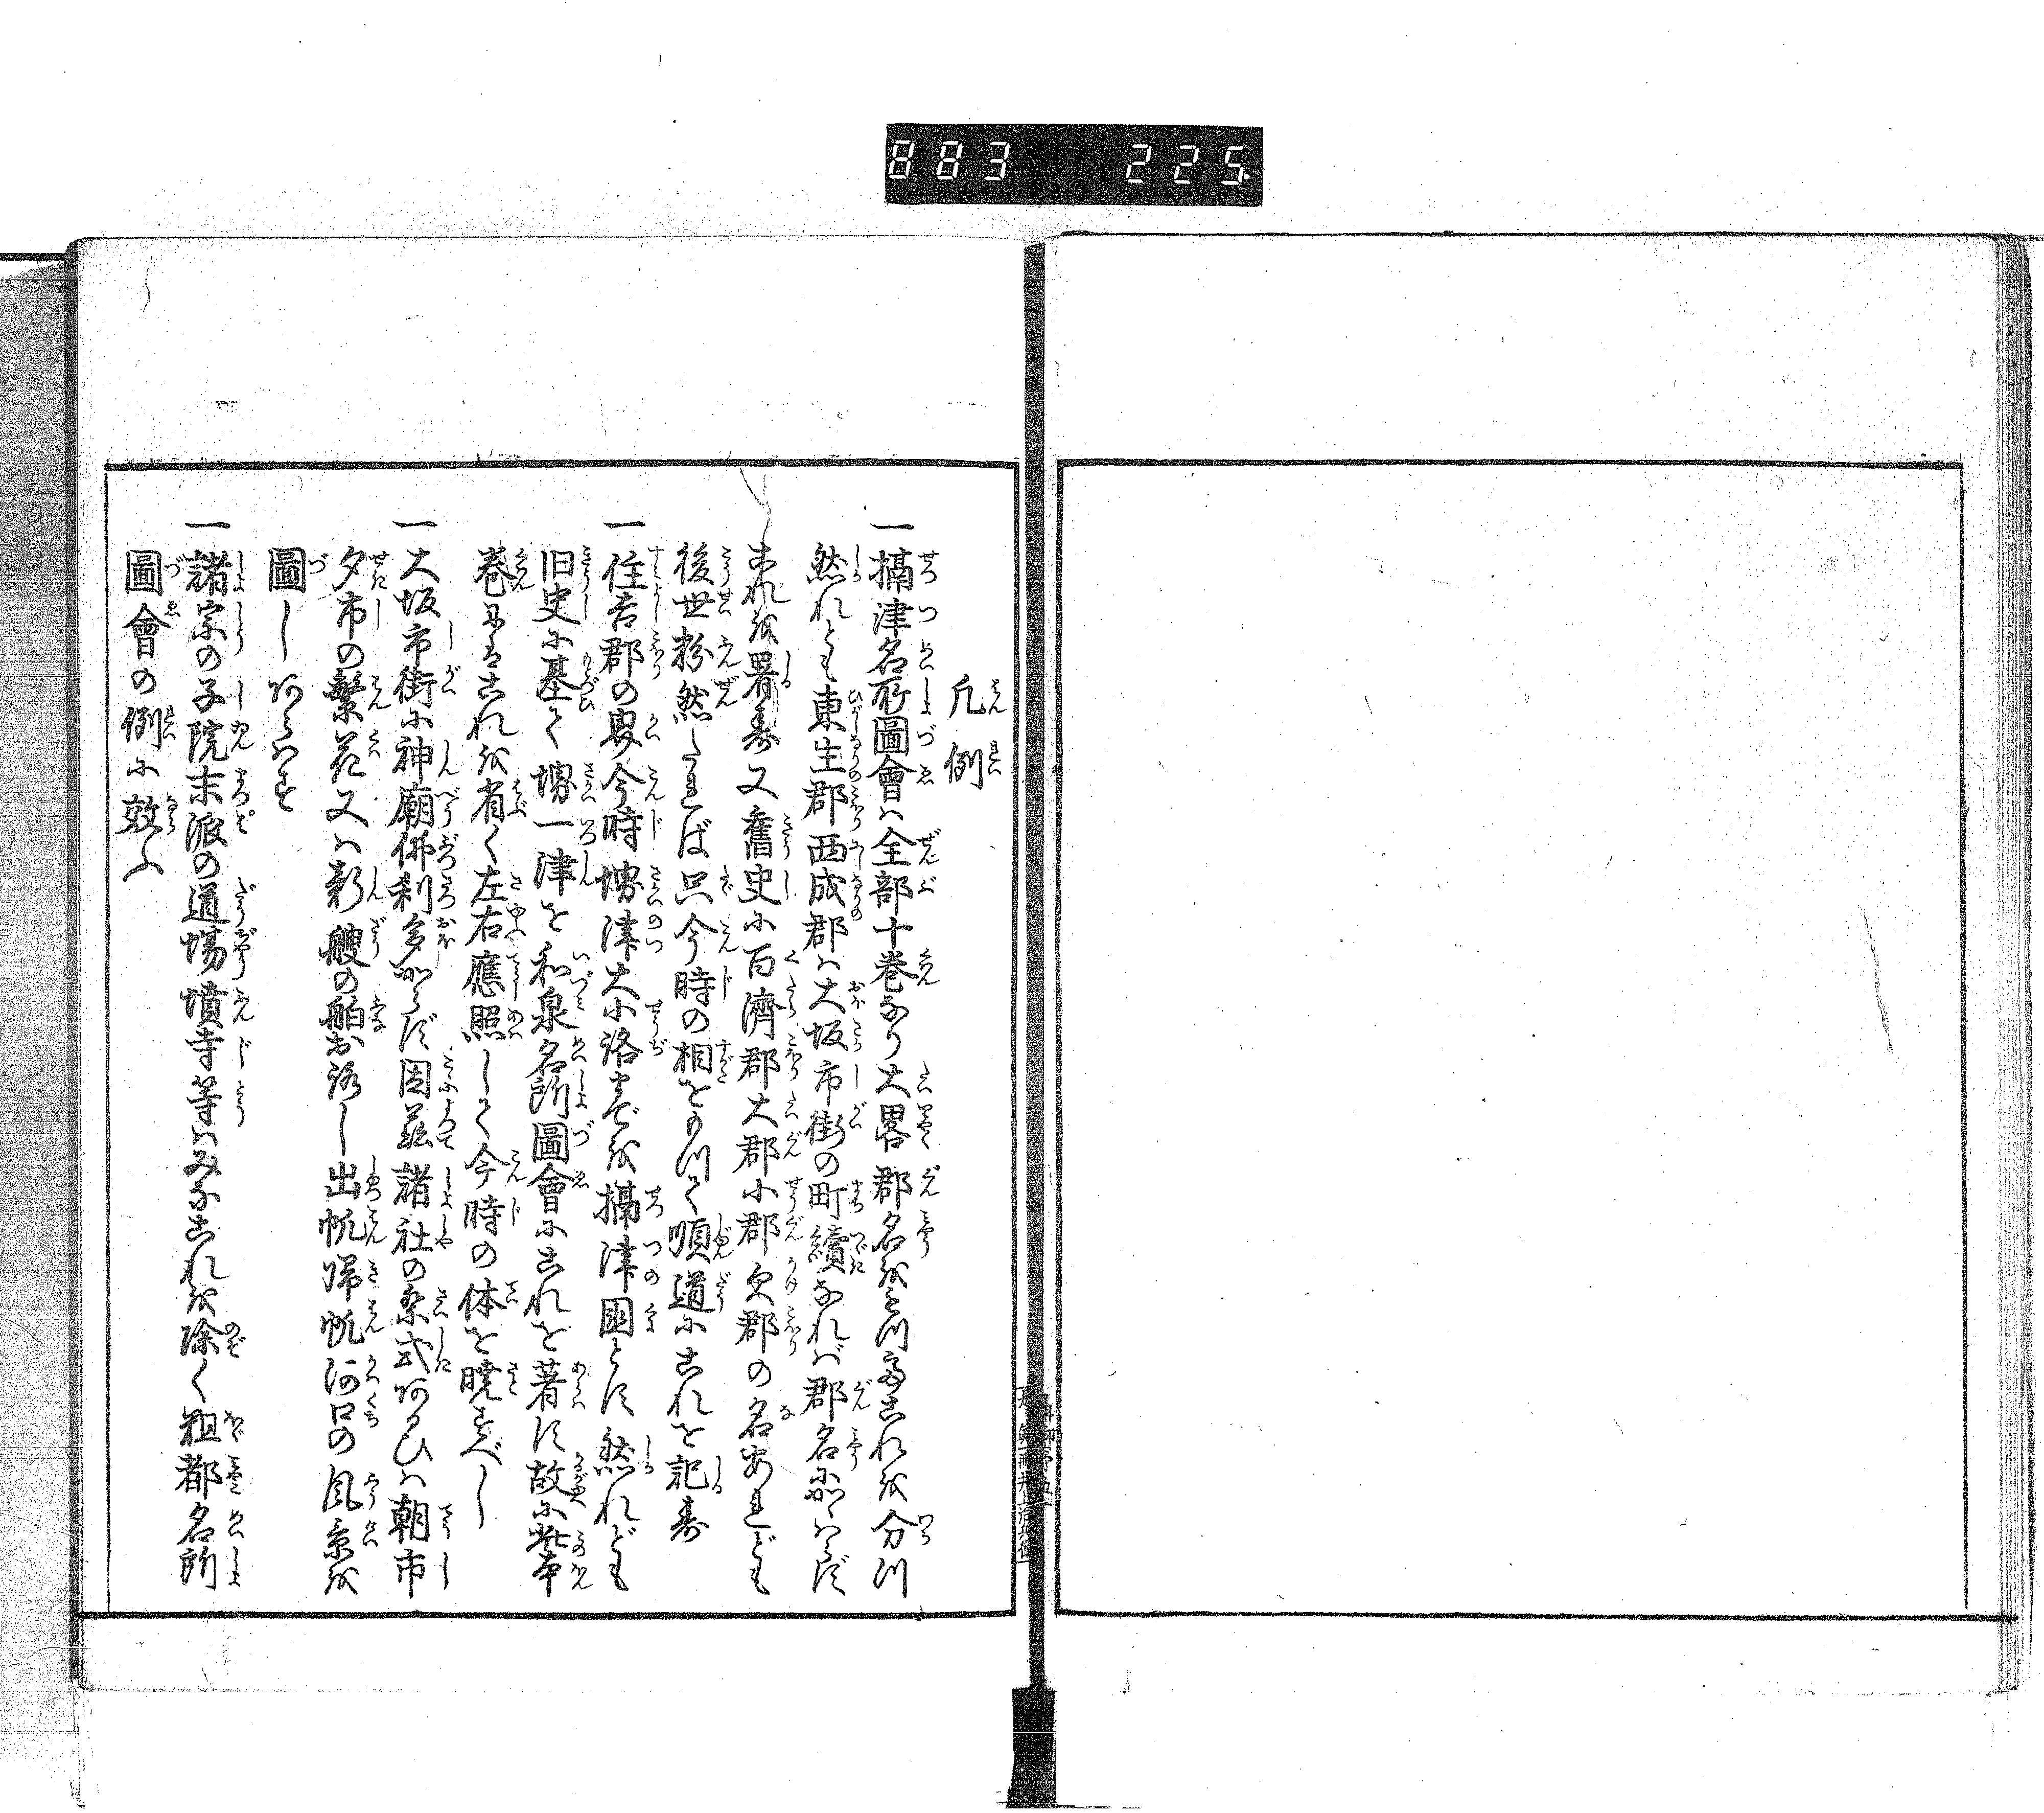 883 225
凡例
一摂津名所圖會ハ全部十巻なり大畧郡名をもつてこれを分つ
然れとも東生郡西成郡ハ大坂市街の町續なれバ郡名にかゝハらず
これを署す又舊史に百済郡大郡小郡欠郡の名あれども
後世粉然たれば只今時の相をもつて順道にこれを記す
一住吉郡の界今時堺津大小路までを摂津国とす然れども
旧史に基て堺一津を和泉名所圖會にこれを著す故に此本
巻にはこれを省く左右應照して今時の体を暁すべし
一大坂市街に神廟佛刹多からず因茲諸社の祭式あるひハ朝市
夕市の繁花又ハ新艘の舶おろし出帆帰帆河口の風景を
圖しあらハす
一諸宗の子院末派の道場墳寺等ハみなこれを除く粗都名所
圖會の例に效ふ